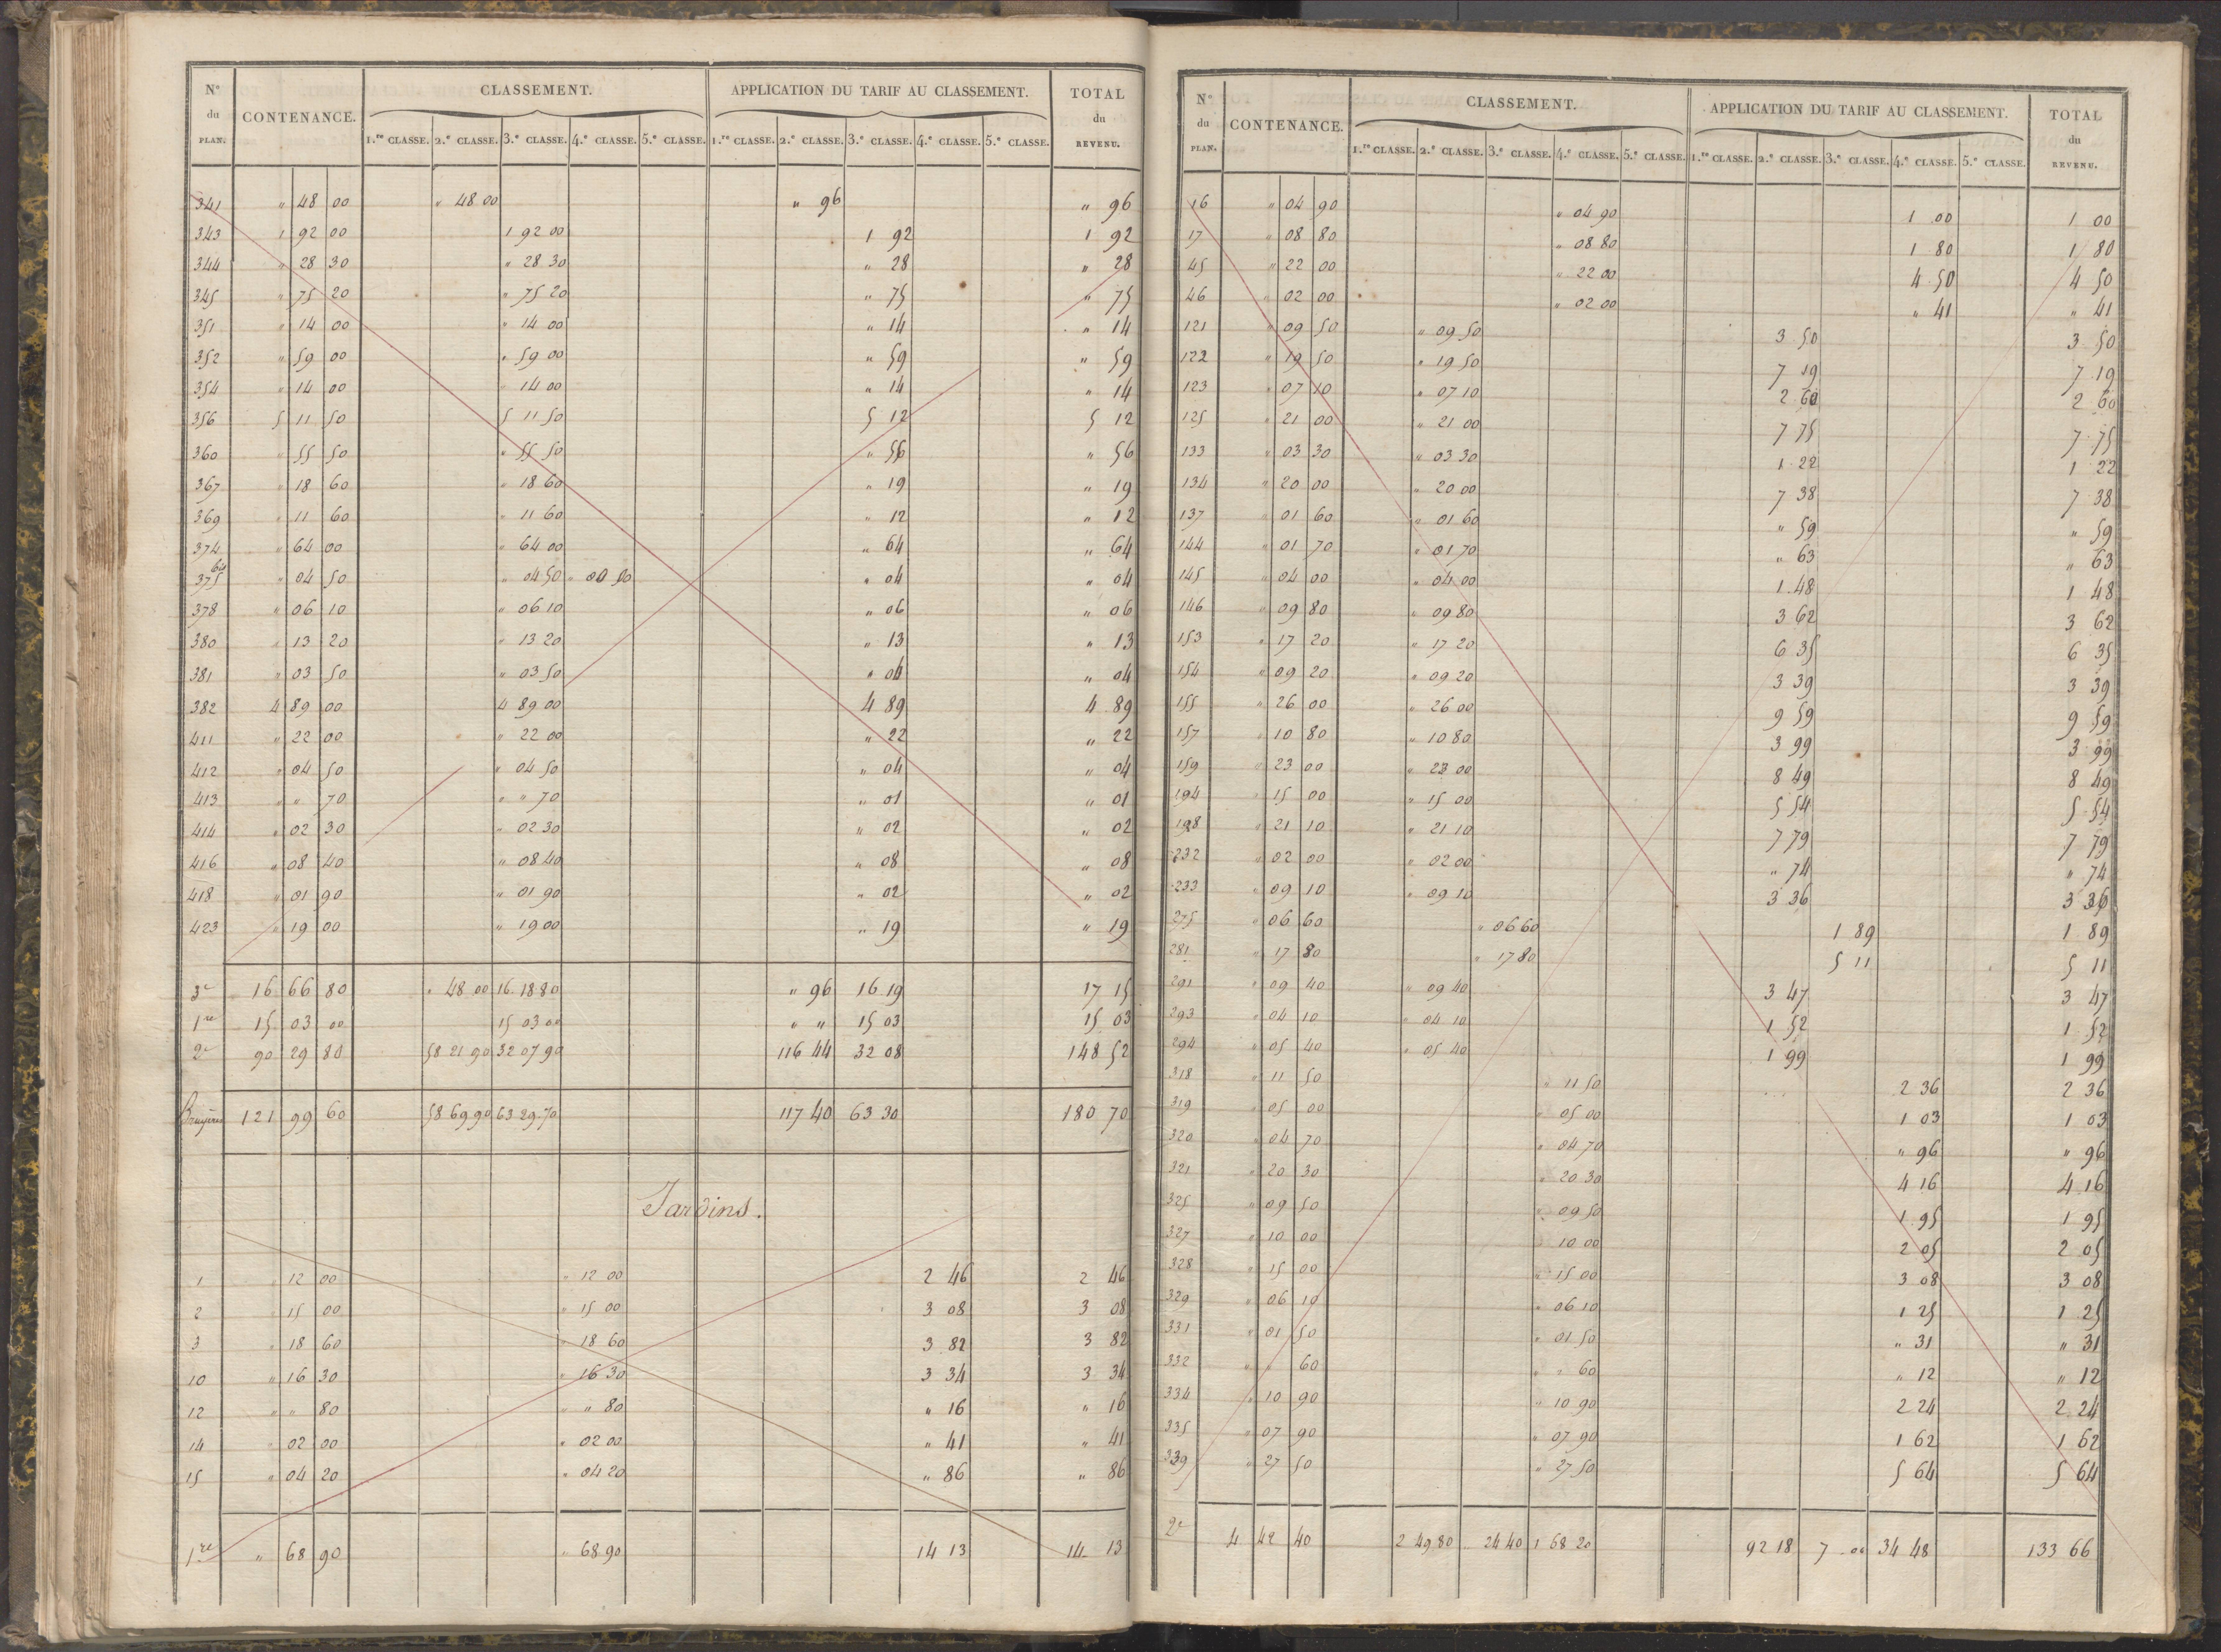 N° du PLAN. CONTENANCE. CLASSEMENT. APPLICATION DU TARIF AU CLASSEMENT. TOTAL du REVENU.
1.re CLASSE. 2.e CLASSE. 3.e CLASSE. 4.e CLASSE. 5.e CLASSE. 1.re CLASSE. 2.e CLASSE. 3.e CLASSE. 4.e CLASSE. 5.e CLASSE.
341 " 48 00 " 48 00 " 96 " 96
343 1 92 00 1 92 00 1 92 1 92
344 " 28 30 " 28 30 " 28 " 28
345 " 75 20 " 75 20 " 75 " 75
351 " 14 00 " 14 00 " 14 " 14
352 " 59 00 " 59 00 " 59 " 59
354 " 14 00 " 14 00 " 14 " 14
356 5 11 50 5 11 50 5 12 5 12
360 " 55 50 " 55 50 " 56 " 56
367 " 18 60 " 18 60 " 19 " 19
369 " 11 60 " 11 60 " 12 " 12
374 " 64 00 " 64 00 " 64 " 64
375 bis " 04 50 " 04 50 " 04 " 04
378 " 06 10 " 06 10 " 06 " 06
380 " 13 20 " 13 20 " 13 " 13
381 " 03 50 " 03 50 " 04 " 04
382 4 89 00 4 89 00 4 89 4 89
411 " 22 00 " 22 00 " 22 " 22
412 " 04 50 " 04 50 " 04 " 04
413 " " 70 " " 70 " 01 " 01
414 " 02 30 " 02 30 " 02 " 02
416 " 08 40 " 08 40 " 08 " 08
418 " 01 90 " 01 90 " 02 " 02
423 " 19 00 " 19 00 " 19 " 19
3e 16 66 80 " 48 00 16 18 80 " 96 16 19 17 15
1re 15 03 00 15 03 00 " " 15 03 15 03
2e 90 29 80 58 21 90 32 07 90 116 44 32 08 148 52
Bruyères 121 99 60 58 69 90 63 29 70 117 40 63 30 180 70
Jardins.
1 " 12 00 " 12 00 2 46 2 46
2 " 15 00 " 15 00 3 08 3 08
3 " 18 60 " 18 60 3 82 3 82
10 " 16 30 " 16 30 3 34 3 34
12 " " 80 " " 80 " 16 " 16
14 " 02 00 " 02 00 " 41 " 41
15 " 04 20 " 04 20 " 86 " 86
1re " 68 90 " 68 90 14 13 14 13
N° du PLAN. CONTENANCE. CLASSEMENT. APPLICATION DU TARIF AU CLASSEMENT. TOTAL du REVENU.
1.re CLASSE. 2.e CLASSE. 3.e CLASSE. 4.e CLASSE. 5.e CLASSE. 1.re CLASSE. 2.e CLASSE. 3.e CLASSE. 4.e CLASSE. 5.e CLASSE.
16 " 04 90 " 04 90 1 00 1 00
17 " 08 80 " 08 80 1 80 1 80
45 " 22 00 " 22 00 4 50 4 50
46 " 02 00 " 02 00 " 41 " 41
121 " 09 50 " 09 50 3 50 3 50
122 " 19 50 " 19 50 7 19 7 19
123 " 07 10 " 07 10 2 60 2 60
125 " 21 00 " 21 00 7 75 7 75
133 " 03 30 " 03 30 1 22 1 22
134 " 20 00 " 20 00 7 38 7 38
137 " 01 60 " 01 60 " 59 " 59
144 " 01 70 " 01 70 " 63 " 63
145 " 04 00 " 04 00 1 48 1 48
146 " 09 80 " 09 80 3 62 3 62
153 " 17 20 " 17 20 6 35 6 35
154 " 09 20 " 09 20 3 39 3 39
155 " 26 00 " 26 00 9 59 9 59
157 " 10 80 " 10 80 3 99 3 99
159 " 23 00 " 23 00 8 49 8 49
194 " 15 00 " 15 00 5 54 5 54
198 " 21 10 " 21 10 7 79 7 79
232 " 02 00 " 02 00 " 74 " 74
233 " 09 10 " 09 10 3 36 3 36
275 " 06 60 " 06 60 1 89 1 89
281 " 17 80 " 17 80 5 11 5 11
291 " 09 40 " 09 40 3 47 3 47
293 " 04 10 " 04 10 1 52 1 52
294 " 05 40 " 05 40 1 99 1 99
318 " 11 50 " 11 50 2 36 2 36
319 " 05 00 " 05 00 1 03 1 03
320 " 04 70 " 04 70 " 96 " 96
321 " 20 30 " 20 30 4 16 4 16
325 " 09 50 " 09 50 1 95 1 95
327 " 10 00 " 10 00 2 05 2 05
328 " 15 00 " 15 00 3 08 3 08
329 " 06 10 " 06 10 1 25 1 25
331 " 01 50 " 01 50 " 31 " 31
332 " " 60 " " 60 " 12 " 12
334 " 10 90 " 10 90 2 24 2 24
335 " 07 90 " 07 90 1 62 1 62
339 " 27 50 " 27 50 5 64 5 64
2e 4 42 40 2 49 80 24 40 1 68 20 92 18 7 00 34 48 133 66